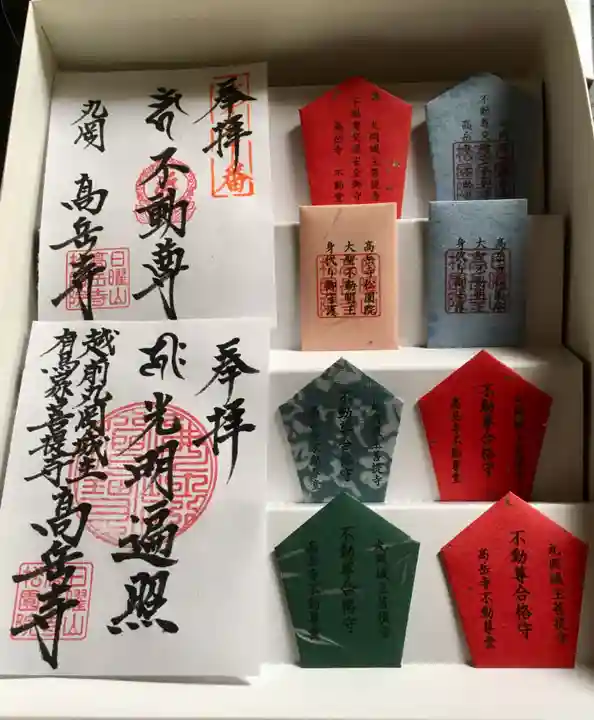 奉拝
不動尊
丸岡 高岳寺
日曜山
高岳寺
奉拝
光明遍照
越前丸岡城主
有馬家菩提寺 高岳寺
日曜山
松園院
丸岡城主菩提寺
不動尊交通安全御守
高岳寺 不動堂
不動尊交
高岳
高岳寺松園院
大聖不動明王
身代り御守護
高岳寺松園院
大聖不動明王
身代り御守護
菩提寺
不動尊合格守
不動尊合格守
高岳寺不動尊堂
丸岡城主菩提寺
不動尊合格守
高岳寺不動尊堂
丸岡城主菩提寺
不動尊合格守
高岳寺不動尊堂